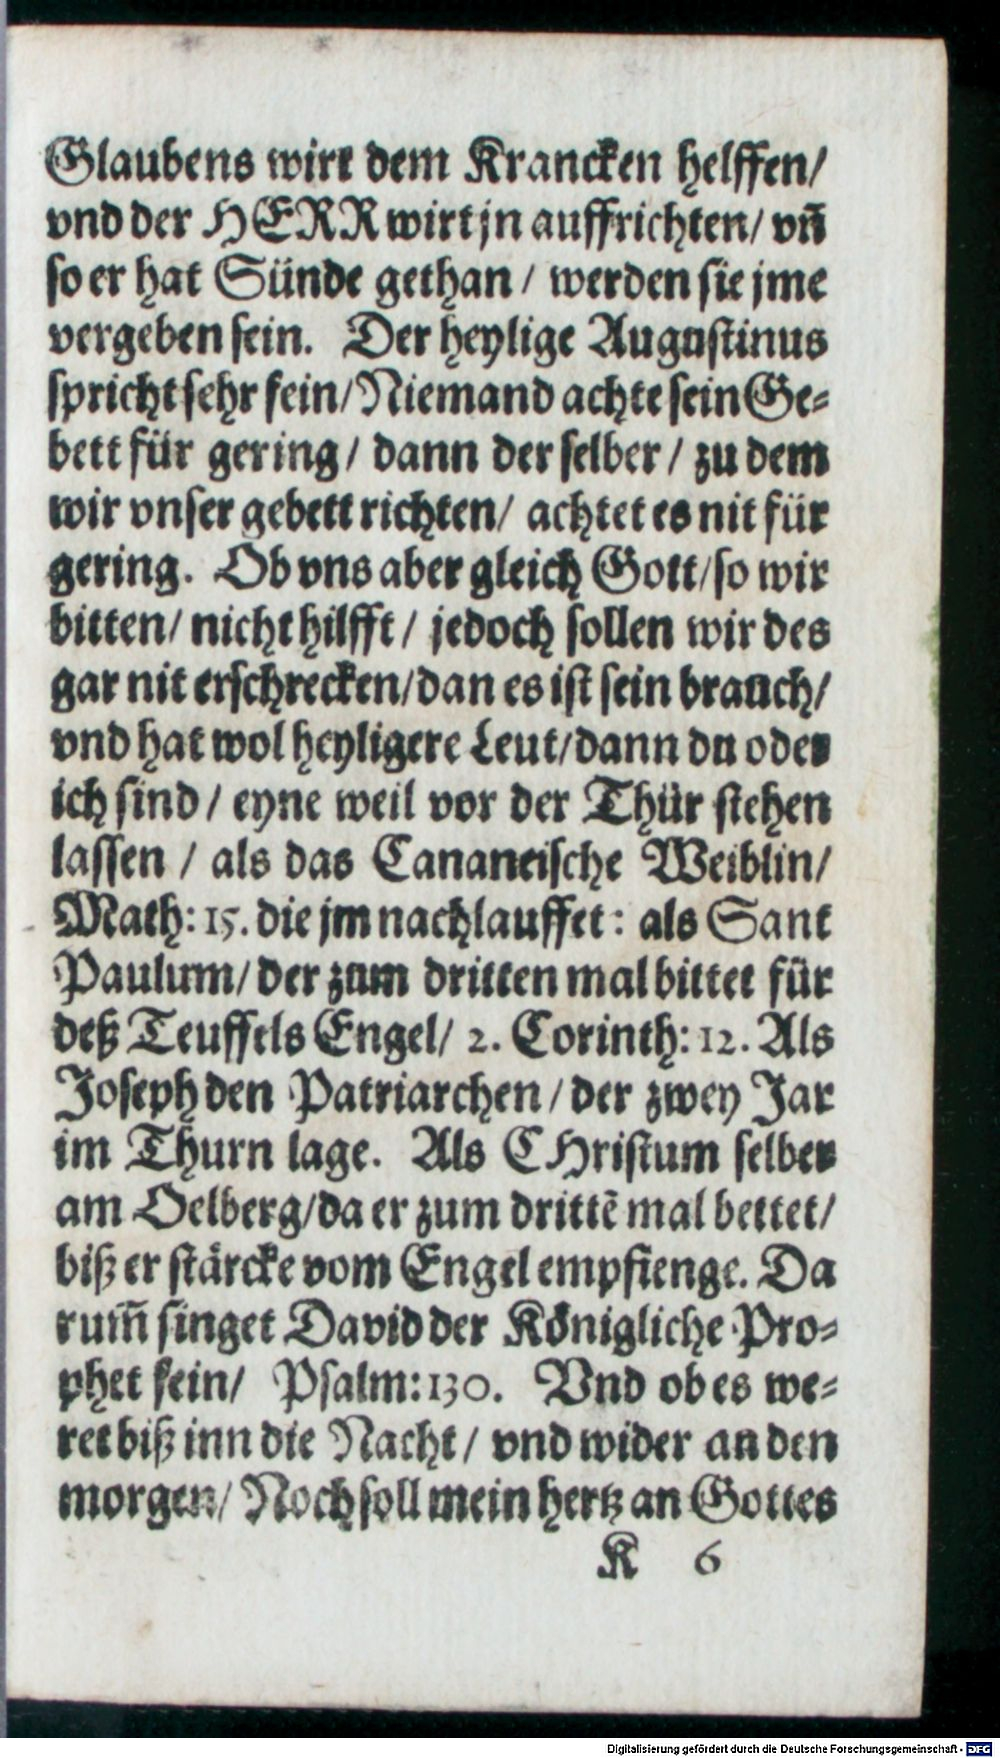 Glaubens wirt dem Krancken helffen/
vnd der HERR wirt jn auffrichten/ vñ
so er hat Sünde gethan / werden sie jme
vergeben sein. Der heylige Augustinus
spricht sehr fein/ Niemand achte sein Ge-
bett für gering / dann der selber / zu dem
wir vnser gebett richten/ achtet es nit für
gering. Ob vns aber gleich Gott/ so wir
bitten/ nicht hilfft / jedoch sollen wir des
gar nit erschrecken/dan es ist sein brauch/
vnd hat wol heyligere Leut/dann du oder
ich sind / eyne weil vor der Thür stehen
lassen / als das Cananeische Weiblin/
Math: 15. die jm nachlauffet: als Sant
Paulum/ der zum dritten mal bittet für
deß Teuffels Engel/ 2. Corinth: 12. Als
Joseph den Patriarchen / der zwey Jar
im Thurn lage. Als CHristum selber
am Oelberg/da er zum drittē mal bettet/
biß er stärcke vom Engel empfienge. Da
rum̃ singet David der Königliche Pro-
phet fein/ Psalm: 130. Vnd ob es we-
ret biß inn die Nacht / vnd wider an den
morgen/ Noch soll mein hertz an Gottes
K 6
Digitalisierung gefördert durch die Deutsche Forschungsgemeinschaft - DFG